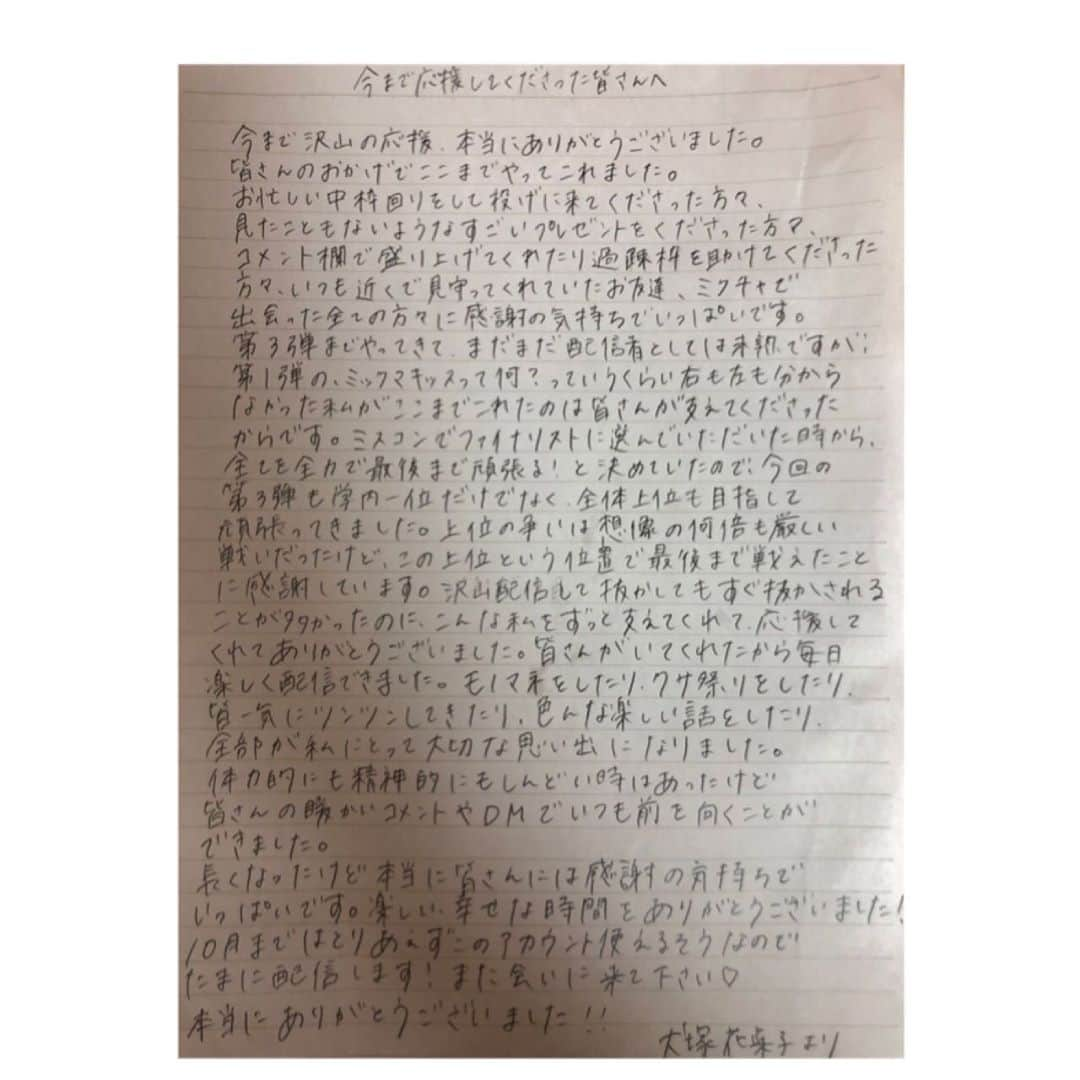 今まで応援してくださった皆さんへ
今まで沢山の応援、本当にありがとうございました。
皆さんのおかげでここまでやってこれました。
お忙しい中枠回りをして投げに来てくださった方々、
見たこともないようなすごいプレゼントをくださった方々、
コメント欄で盛り上げてくれたり過疎枠を助けてくださった
方々、いつも近くで見守ってくれていたお友達、ミクチャで
出会った全ての方々に感謝の気持ちでいっぱいです。
第3弾までやってきて、まだまだ配信者としては未熟ですが、
第1弾の、ミックマキッスって何?っていうくらい右も左も分から
なかった私がここまでこれたのは皆さんが支えてくださった
からです。ミスコンでファイナリストに選んでいただいた時から、
全てを全力で最後まで頑張る!と決めていたので、今回の
第3弾も学内一位だけでなく、全体上位も目指して
頑張ってきました。上位の争いは想像の何倍も厳しい
戦いだったけど、この上位という位置で最後まで戦えたこと
に感謝しています。沢山配信して抜かしてもすぐ抜かされる
ことが多かったのに、こんな私をずっと支えてくれて、応援して
くれてありがとうございました。皆さんがいてくれたから毎日
楽しく配信できました。モノマネをしたり、クサ祭りをしたり、
皆一気にツンツンしてきたり、色んな楽しい話をしたり、
全部が私にとって大切な思い出になりました。
体力的にも精神的にもしんどい時はあったけど
皆さんの暖かいコメントやDMでいつも前を向くことが
できました。
長くなったけど本当に皆さんには感謝の気持ちで
いっぱいです。楽しい、幸せな時間をありがとうございました!
10月まではとりあえずこのアカウント使えるそうなので
たまに配信します!また会いに来て下さい♡
本当にありがとうございました!!
犬塚花菜子より